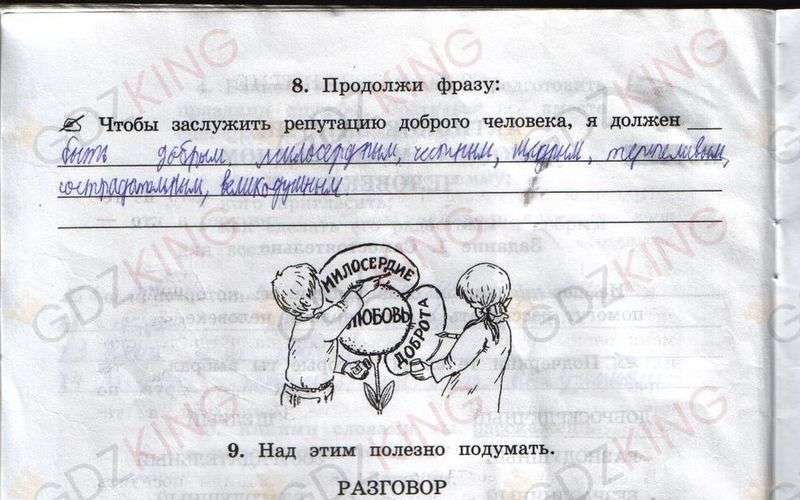 8. Продолжи фразу:
Чтобы заслужить репутацию доброго человека, я должен
быть добрым, милосердным, честным, щедрым, терпеливым,
сострадательным, великодушным
МИЛОСЕРДИЕ
ЛЮБОВЬ
ДОБРОТА
9. Над этим полезно подумать.
РАЗГОВОР
GDZKING